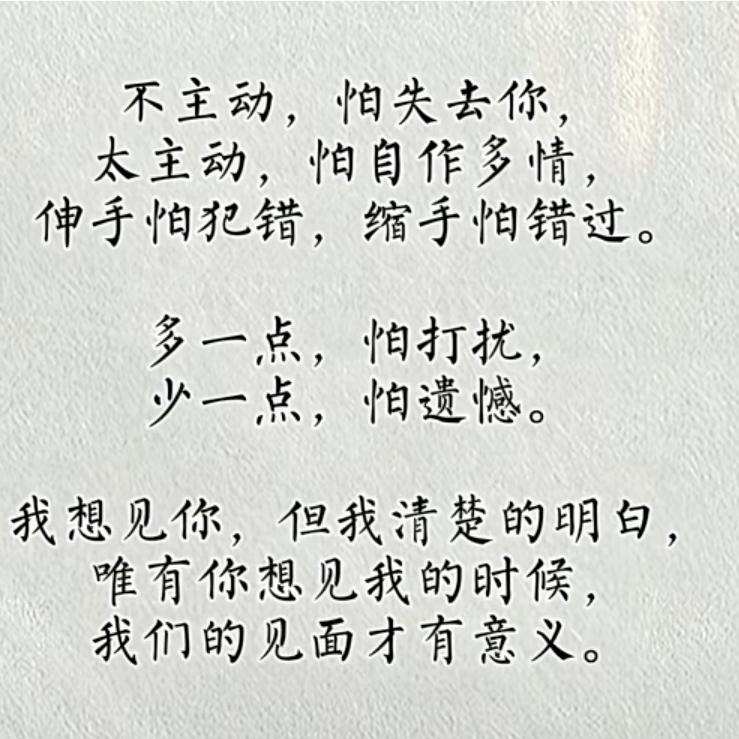 不主动，怕失去你，
太主动，怕自作多情，
伸手怕犯错，缩手怕错过。
多一点，怕打扰，
少一点，怕遗憾。
我想见你，但我清楚的明白，
唯有你想见我的时候，
我们的见面才有意义。